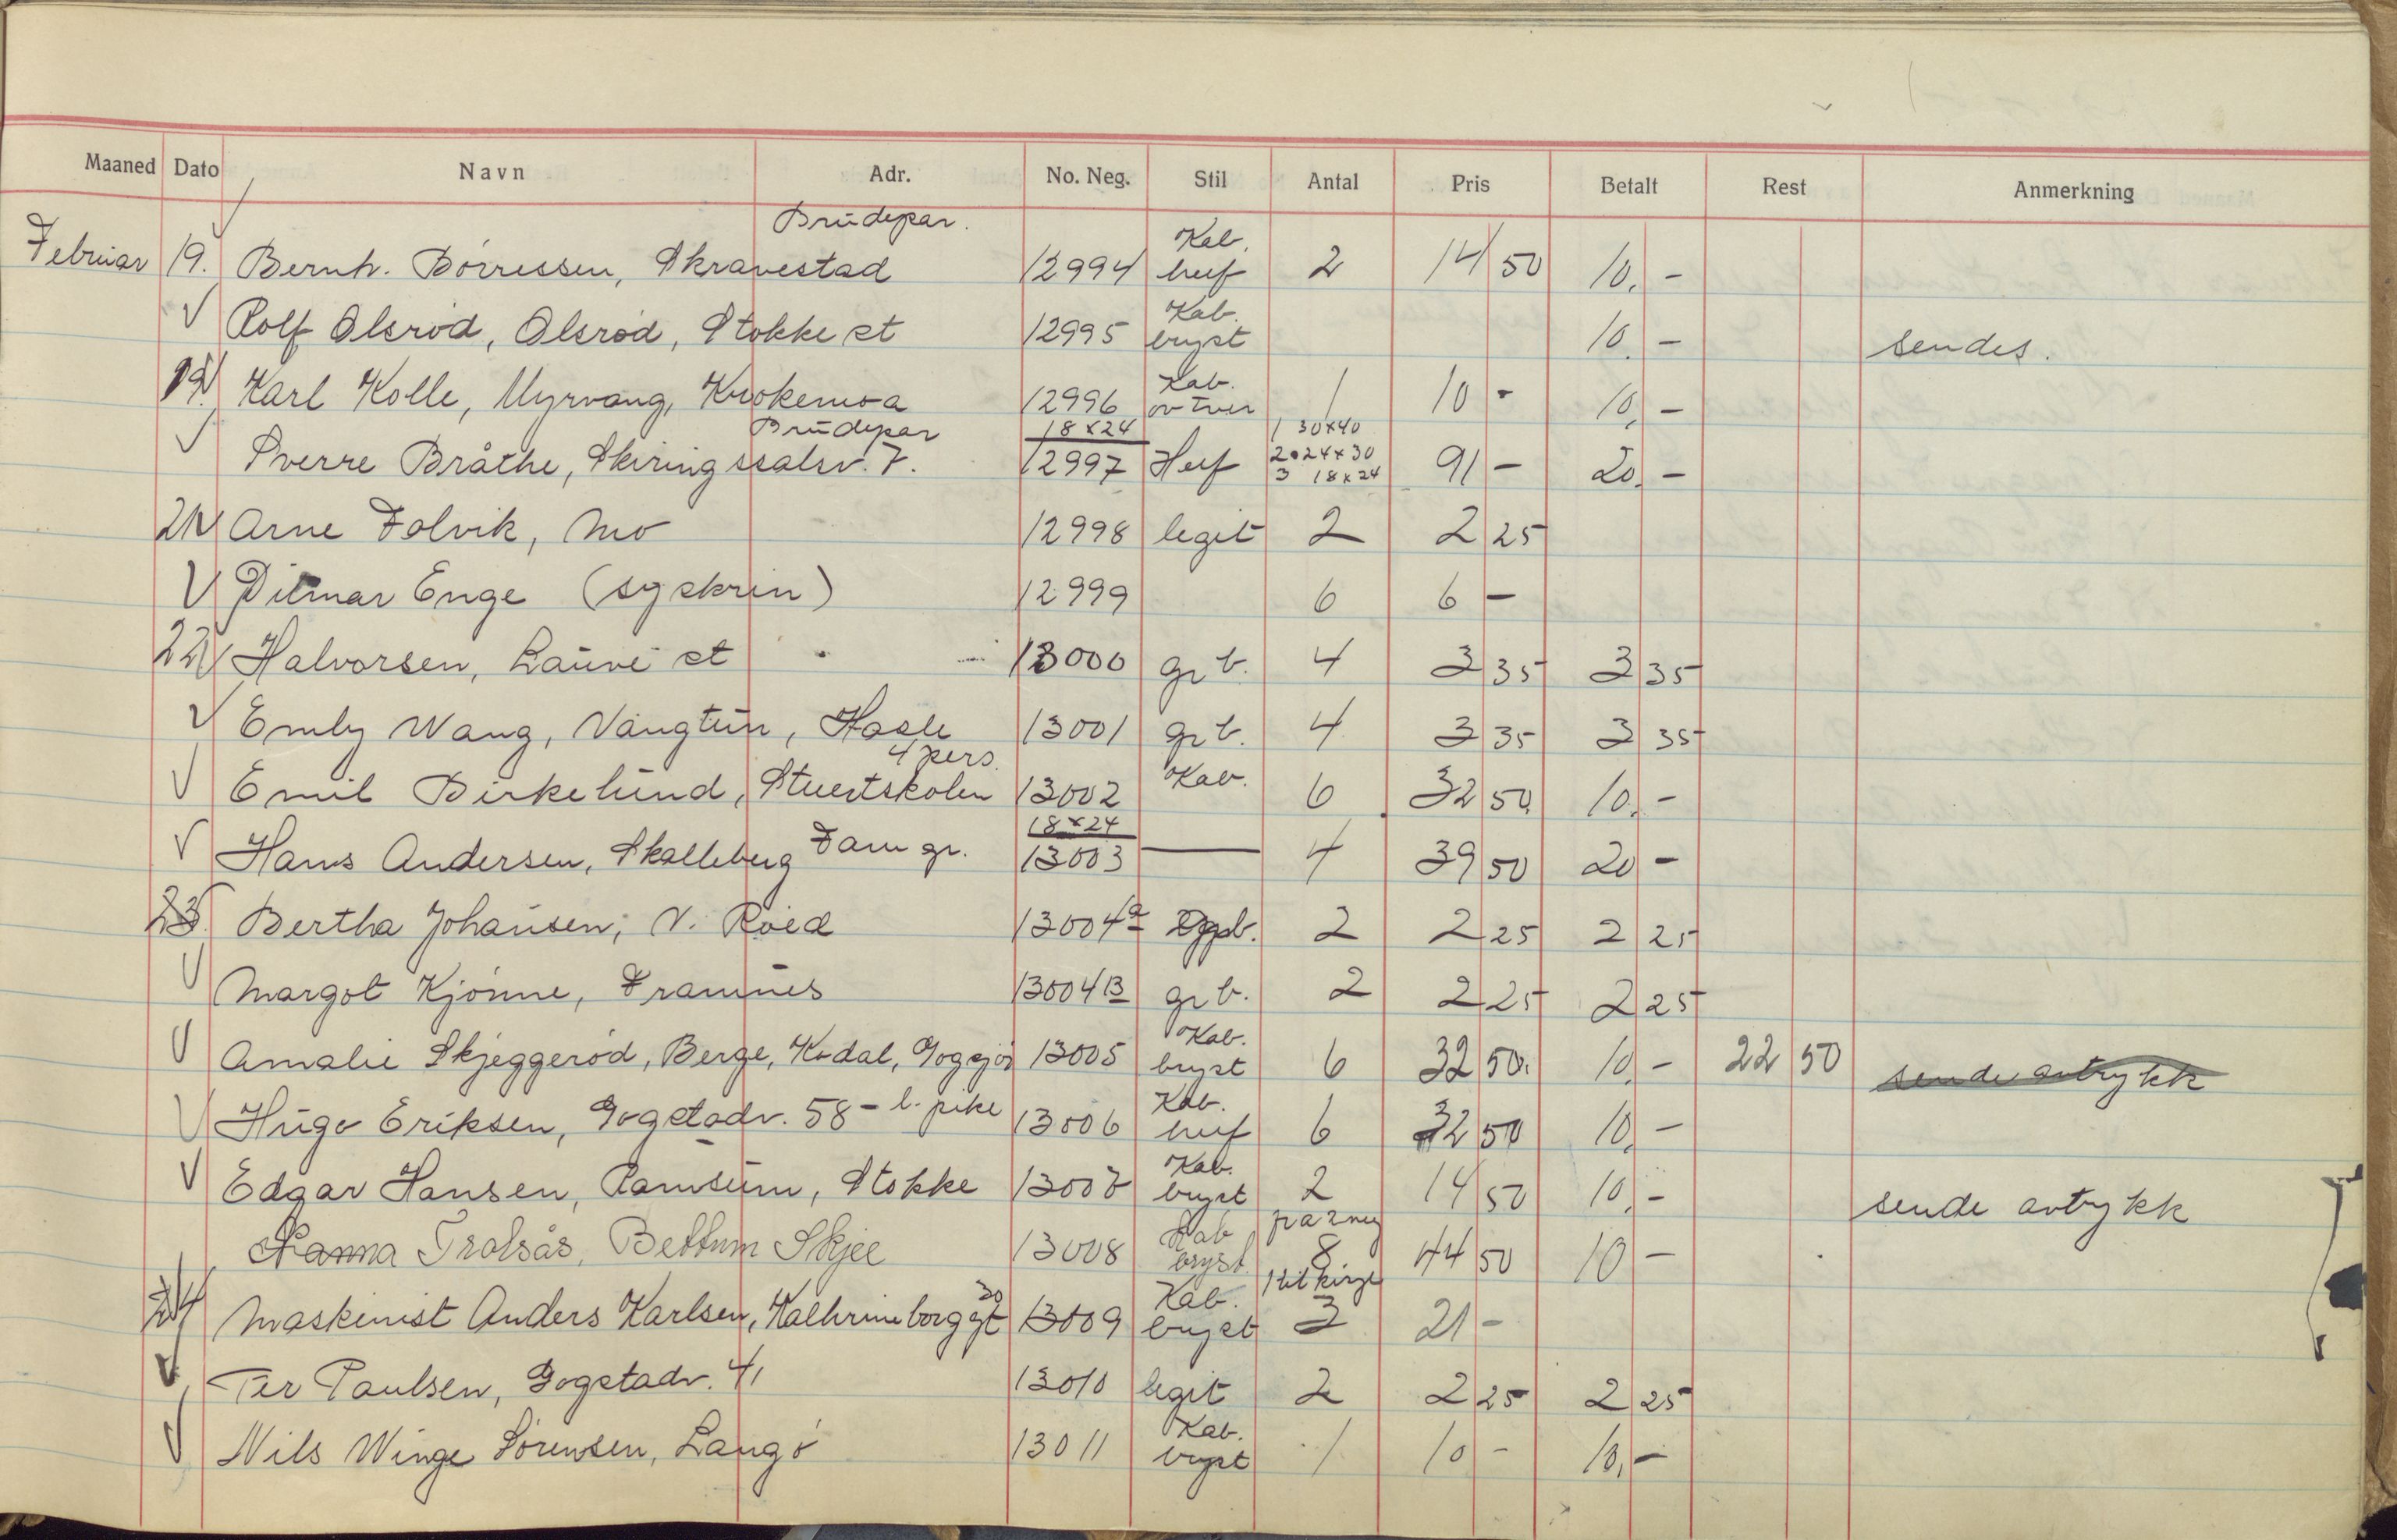 Maaned Dato Navn Adr. No. Neg. Stil Antal Pris Betalt Rest Anmerkning
Brudepar.
Februar 19. Bernh. Börressen, Skravestad 12994 Kab. heef 2 14 50 10. -
Rolf Olsröd, Olsröd, Stokke st 12995 Kab. bryst 10. - sendes.
19. Karl Kolle, Myrvang, Krokemoa 12996 Kab. 1 10 - 10, -
Brudepar 18x24 1 30x40
Sverre Bråthe, Skiringssalsv. 7. 12997 Heef 2 24x30 3 18x24 91 - 20. -
21 Arne Folvik, Mo 12998 legit 2 2 25
Ditmar Enge (syskrin) 12999 6 6 -
22 Halvorsen, Lauve st 13000 gr b. 4 3 35 3 35
Emly Wang, Vangtun, Hasle 13001 gr b. 4 3 35 3 35
4 pers.
Emil Birkelund, Stuertskolen 13002 Kab. 6 32 50 10. -
18x24
Hans Andersen, Skalleberg Fam gr. 13003 — 4 39 50 20 -
23. Bertha Johansen, N. Röed 13004a b. 2 2 25 2 25
Margot Kjönne, Framnes 13004B gr b. 2 2 25 2 25
Amalie Skjeggeröd, Berge, Kodal, Gogsjö 13005 Kab. bryst 6 32 50. 10, - 22 50 sende avtrykk
Hugo Eriksen, Gogstadv. 58 - l. pike 13006 Kab. heef 6 32 50 10, -
Edgar Hansen, Ramsum, Stokke 13007 Kab. bryst 2 14 50 10, - sende avtrykk
på 2 neg
Nanna Trolsås, Bettum Skjee 13008 Kab bryst. 8 44 50 10 -
24 Maskinist Anders Karlsen, Kathrineborggt 20 13009 Kab. bryst 3 21 -
Per Paulsen, Gogstadv. 41 13010 legit 2 2 25 2 25
Nils Winge Sörensen, Langö 13011 Kab. bryst 1 10 - 10, -